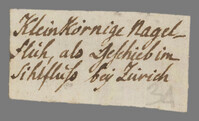 Kleinkörnige Nagel-
fluh, als Geschieb im
Sihlfluß bey Zürich